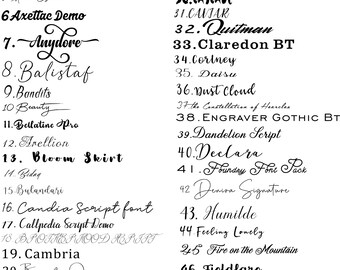 6 Axettac Demo
7. Anydore
8. Balistaf
9. Bandits
10. Beauty
11. Bellatine Pro
12.
13. Bloom Skirt
14. Boday
15. Bulandari
16. Candia Script font
17. Callpedia Script Demo
18. BROTHERHOOD SCRIPT
19. Cambria
20.
31. CAVIAR
32. Quitman
33. Claredon BT
34. Cortney
35. Daisu
36. Dust Cloud
37 the Constellation of Hercules
38. ENGRAVER GOTHIC BT
39. Dandelion Script
40. Declara
41. Foundry Font Pack
42 Denova Signature
43. Humilde
44 Feeling Lovely
45 Fire on the Mountain
46. Fieldfare